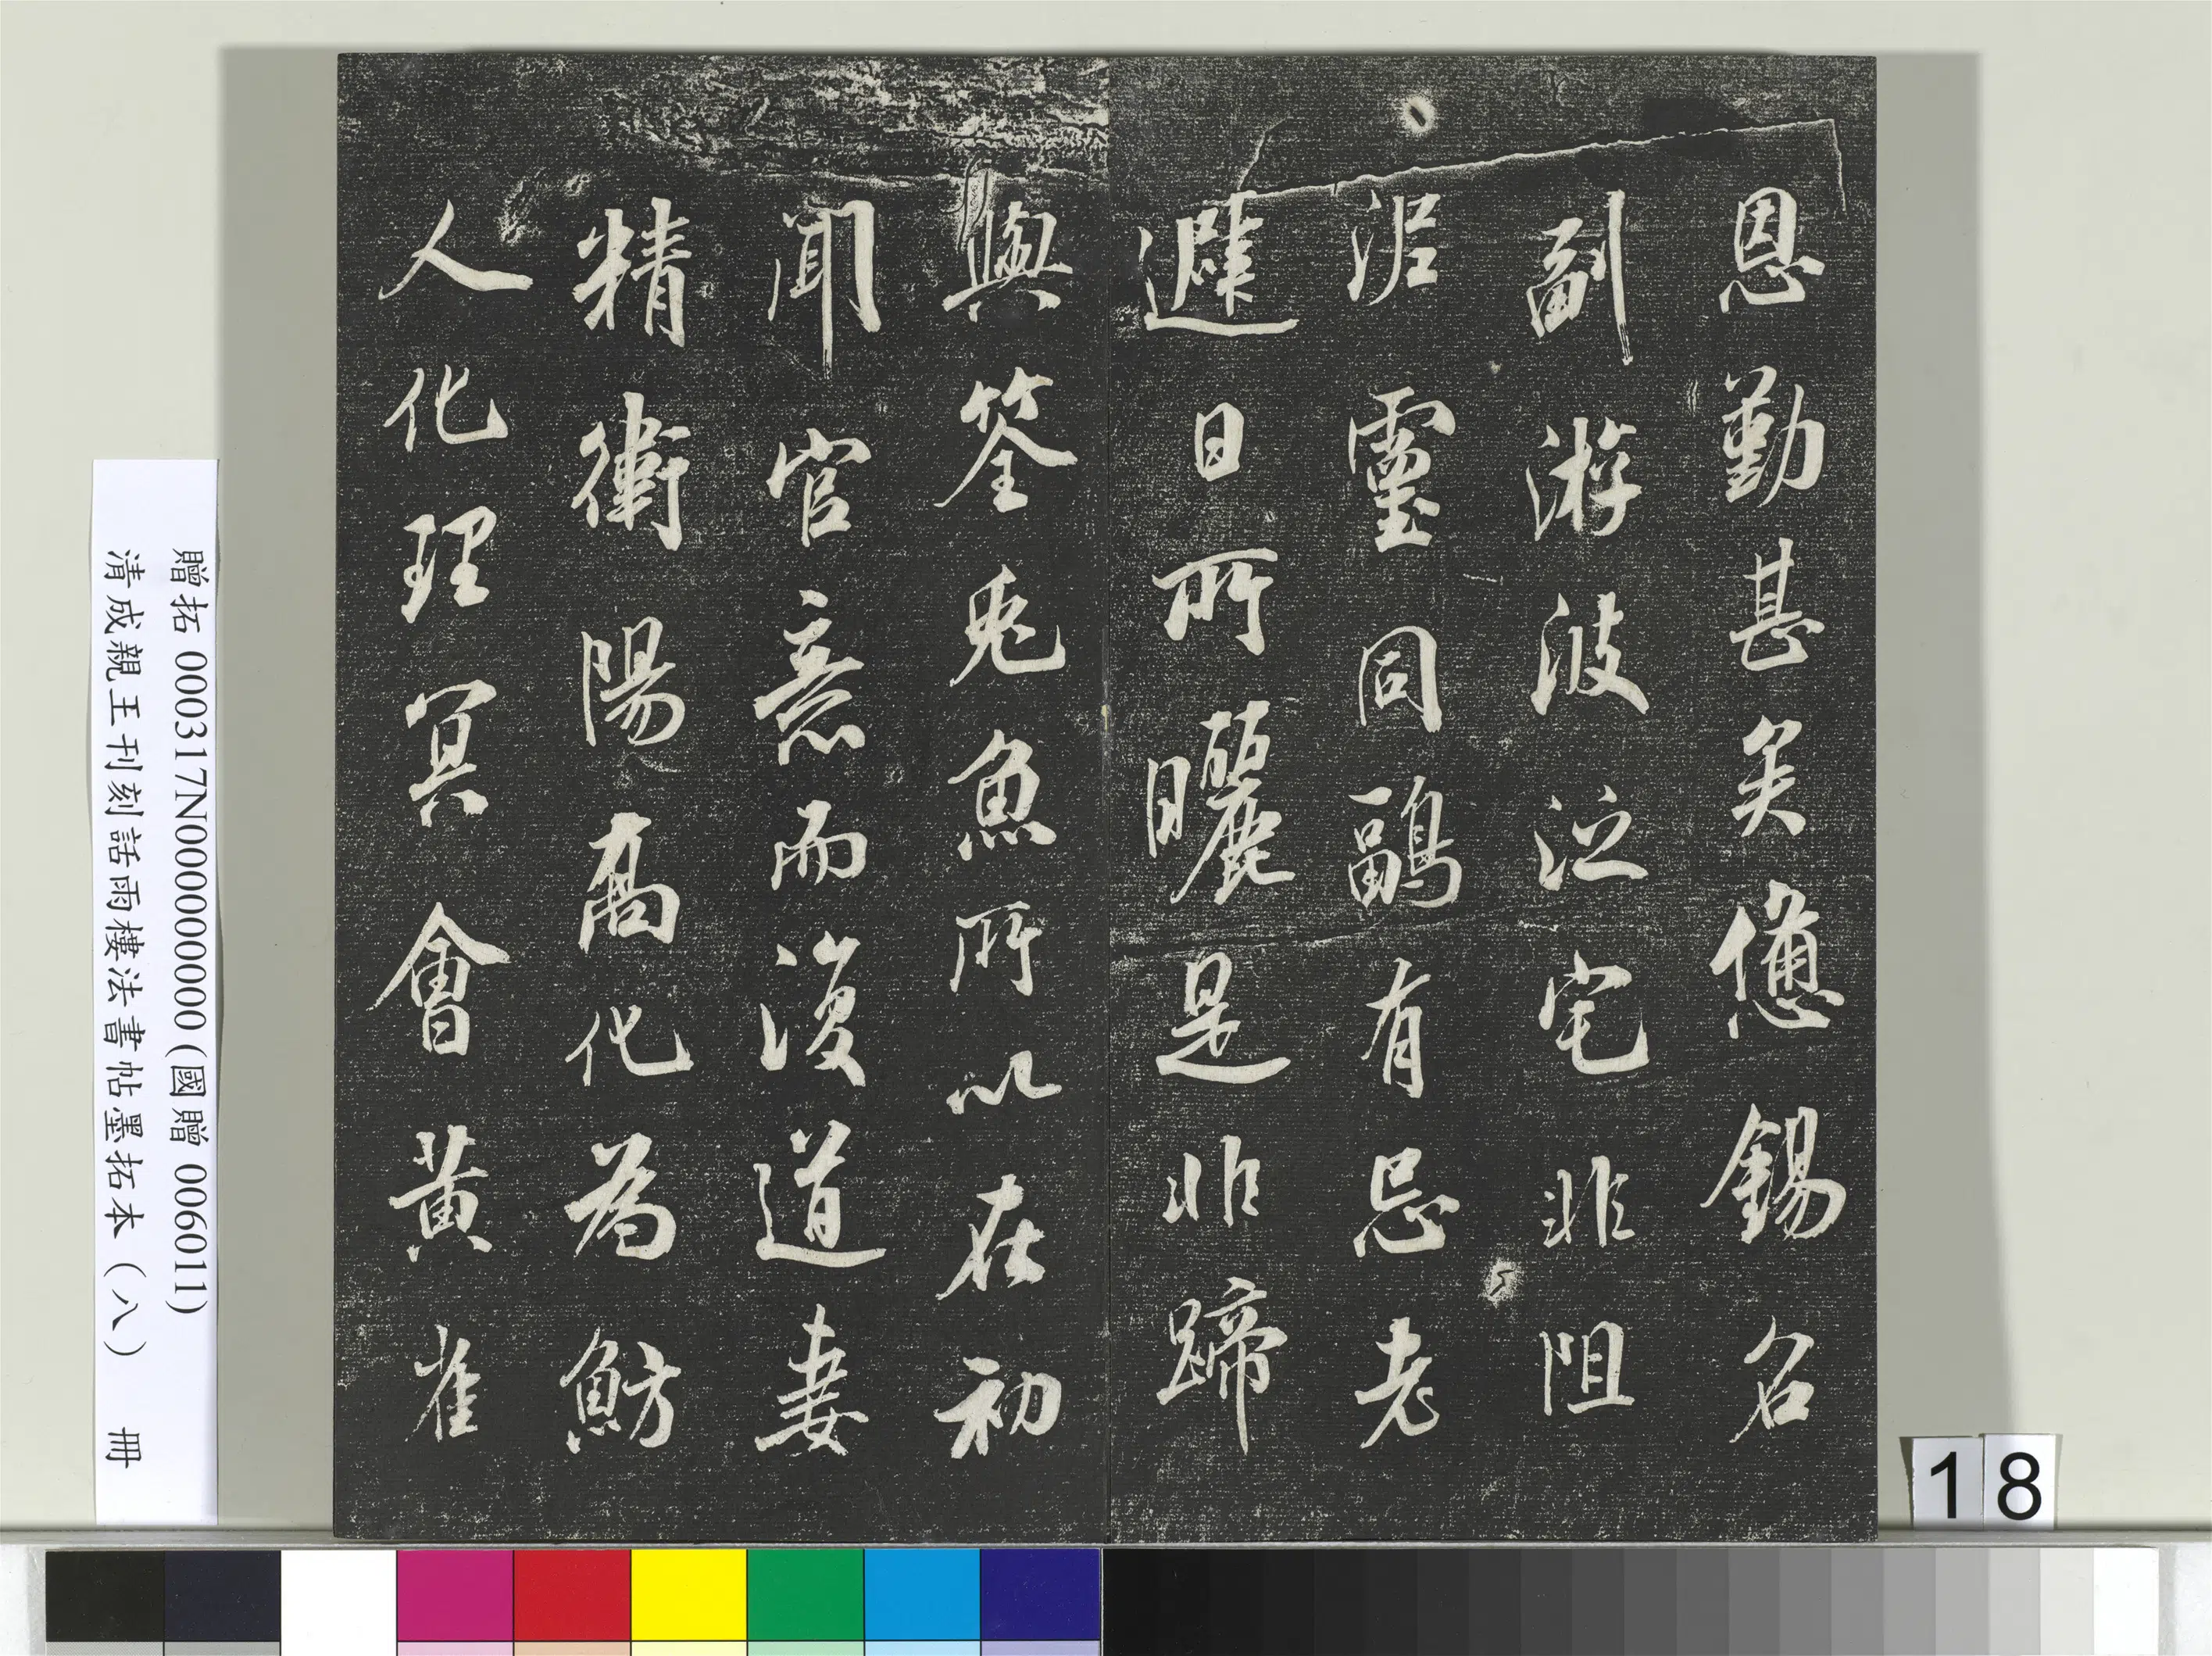 恩勤甚矣憊錫名
副游波泛宅非阻
泥靈同鶝有忌老
避日所曬是非蹄
與筌兔魚所以在初
聞官意而復道妻
精衛陽高化為魴
人化理冥會黃雀
贈拓 000317N000000000 (國贈 006011)
清成親王刊刻詒晉樓法書帖墨拓本 (八) 冊
18